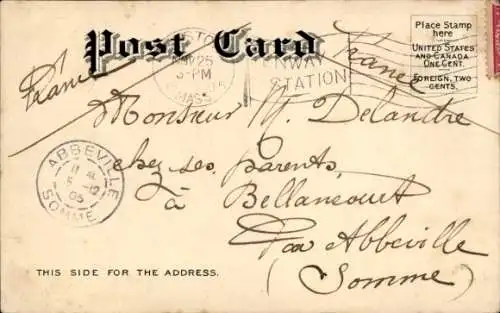 Post Card
Place Stamp
here
UNITED STATES
AND CANADA
ONE CENT.
FOREIGN, TWO
CENTS.
NOV 25
PM
MASS.
STATION
France
France
Monsieur M. Delandre
chez ses parents,
à Bellancourt
par Abbeville
(Somme)
ABBEVILLE
5 -12
05
SOMME
THIS SIDE FOR THE ADDRESS.